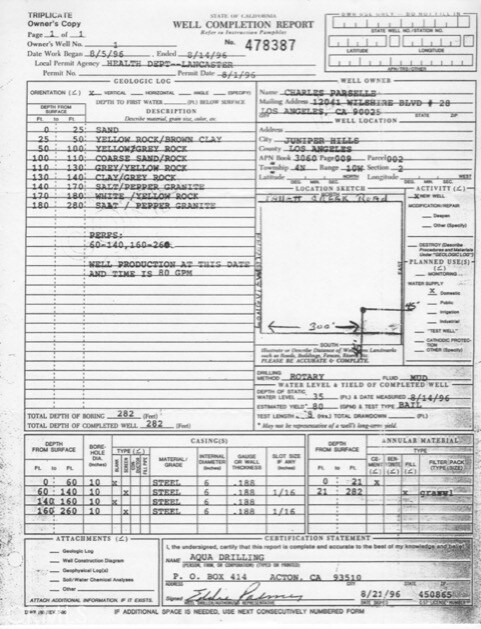 TRIPLICATE
Owner's Copy
STATE OF CALIFORNIA
WELL COMPLETION REPORT
Refer to Instruction Pamphlet
Page 1 of 1
Owner's Well No. 1
No. 478387
Date Work Began 8/5/96 , Ended 8/14/96
Local Permit Agency HEALTH DEPT--LANCASTER
Permit No. Permit Date 8/1/96
STATE WELL NO./STATION NO.
LATITUDE LONGITUDE
APN/TRS/OTHER
GEOLOGIC LOG
ORIENTATION (∠) X VERTICAL HORIZONTAL ANGLE (SPECIFY)
DEPTH TO FIRST WATER (Ft.) BELOW SURFACE
DEPTH FROM SURFACE
Ft. to Ft.
DESCRIPTION
Describe material, grain size, color, etc.
0 25 SAND
25 50 YELLOW ROCK/BROWN CLAY
50 100 YELLOW/GREY ROCK
100 110 COARSE SAND/ROCK
110 130 GREY/YELLOW ROCK
130 140 CLAY/GREY ROCK
140 170 SALT/PEPPER GRANITE
170 180 WHITE/YELLOW ROCK
180 280 SALT / PEPPER GRANITE
PERFS:
60-140,160-260
WELL PRODUCTION AT THIS DATE
AND TIME IS 80 GPM
TOTAL DEPTH OF BORING 282 (Feet)
TOTAL DEPTH OF COMPLETED WELL 282 (Feet)
WELL OWNER
Name CHARLES PARSELLS
Mailing Address 12041 WILSHIRE BLVD # 28
LOS ANGELES, CA 90025
CITY STATE ZIP
WELL LOCATION
Address
City JUNIPER HILLS
County LOS ANGELES
APN Book 3060 Page 009 Parcel 002
Township 4N Range 10W Section 2
Latitude NORTH Longitude WEST
DEG. MIN. SEC. DEG. MIN. SEC.
LOCATION SKETCH
EAST
300'
SOUTH
Illustrate or Describe Distance of Well from Landmarks
such as Roads, Buildings, Fences, Rivers, etc.
PLEASE BE ACCURATE & COMPLETE.
ACTIVITY (∠)
X NEW WELL
MODIFICATION/REPAIR
Deepen
Other (Specify)
DESTROY (Describe
Procedures and Materials
Under "GEOLOGIC LOG")
PLANNED USE(S)
(∠)
MONITORING
WATER SUPPLY
X Domestic
Public
Irrigation
Industrial
"TEST WELL"
CATHODIC PROTECTION
OTHER (Specify)
DRILLING METHOD ROTARY FLUID MUD
WATER LEVEL & YIELD OF COMPLETED WELL
DEPTH OF STATIC
WATER LEVEL 35 (Ft.) & DATE MEASURED 8/14/96
ESTIMATED YIELD* 80 (GPM) & TEST TYPE BAIL
TEST LENGTH (Hrs.) TOTAL DRAWDOWN (Ft.)
* May not be representative of a well's long-term yield.
DEPTH FROM SURFACE
Ft. to Ft.
BORE-HOLE DIA. (Inches)
CASING(S)
TYPE (∠)
BLANK SCREEN
FILL PIPE
MATERIAL/GRADE
INTERNAL DIAMETER (Inches)
GAUGE OR WALL THICKNESS
SLOT SIZE IF ANY (Inches)
0 60 10 X STEEL 6 .188
60 140 10 X STEEL 6 .188 1/16
140 160 10 X STEEL 6 .188
160 260 10 X STEEL 6 .188 1/16
DEPTH FROM SURFACE
Ft. to Ft.
ANNULAR MATERIAL
TYPE
CEMENT (∠) BENTONITE (∠) FILL (∠) FILTER PACK (TYPE/SIZE)
0 21 X
21 282 X gravel
ATTACHMENTS (∠)
Geologic Log
Well Construction Diagram
Geophysical Log(s)
Soil/Water Chemical Analyses
Other
ATTACH ADDITIONAL INFORMATION, IF IT EXISTS.
CERTIFICATION STATEMENT
I, the undersigned, certify that this report is complete and accurate to the best of my knowledge and belief.
NAME AQUA DRILLING
(PERSON, FIRM, OR CORPORATION) (TYPED OR PRINTED)
P. O. BOX 414 ACTON, CA 93510
ADDRESS CITY STATE ZIP
Signed Eddie Palmer 8/21/96 450865
WELL DRILLER/AUTHORIZED REPRESENTATIVE DATE SIGNED C-57 LICENSE NUMBER
IF ADDITIONAL SPACE IS NEEDED, USE NEXT CONSECUTIVELY NUMBERED FORM